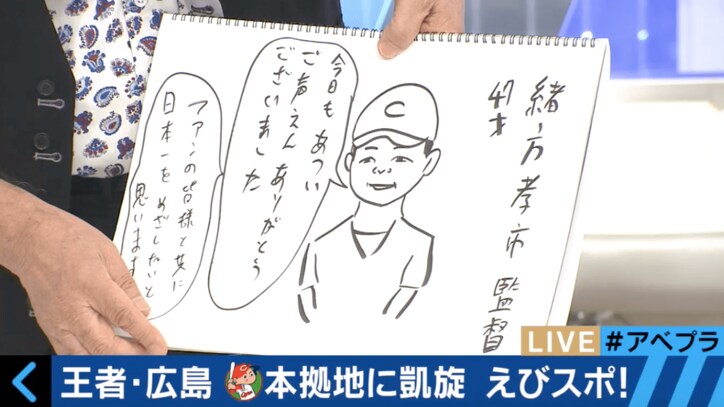 緒方孝市 監督
47才
C
今日もあつい
ご声えんありがとう
ございました
ファンの皆様と共に
日本一をめざしたいと
思います
LIVE #アベプラ
王者・広島 本拠地に凱旋 えびスポ!